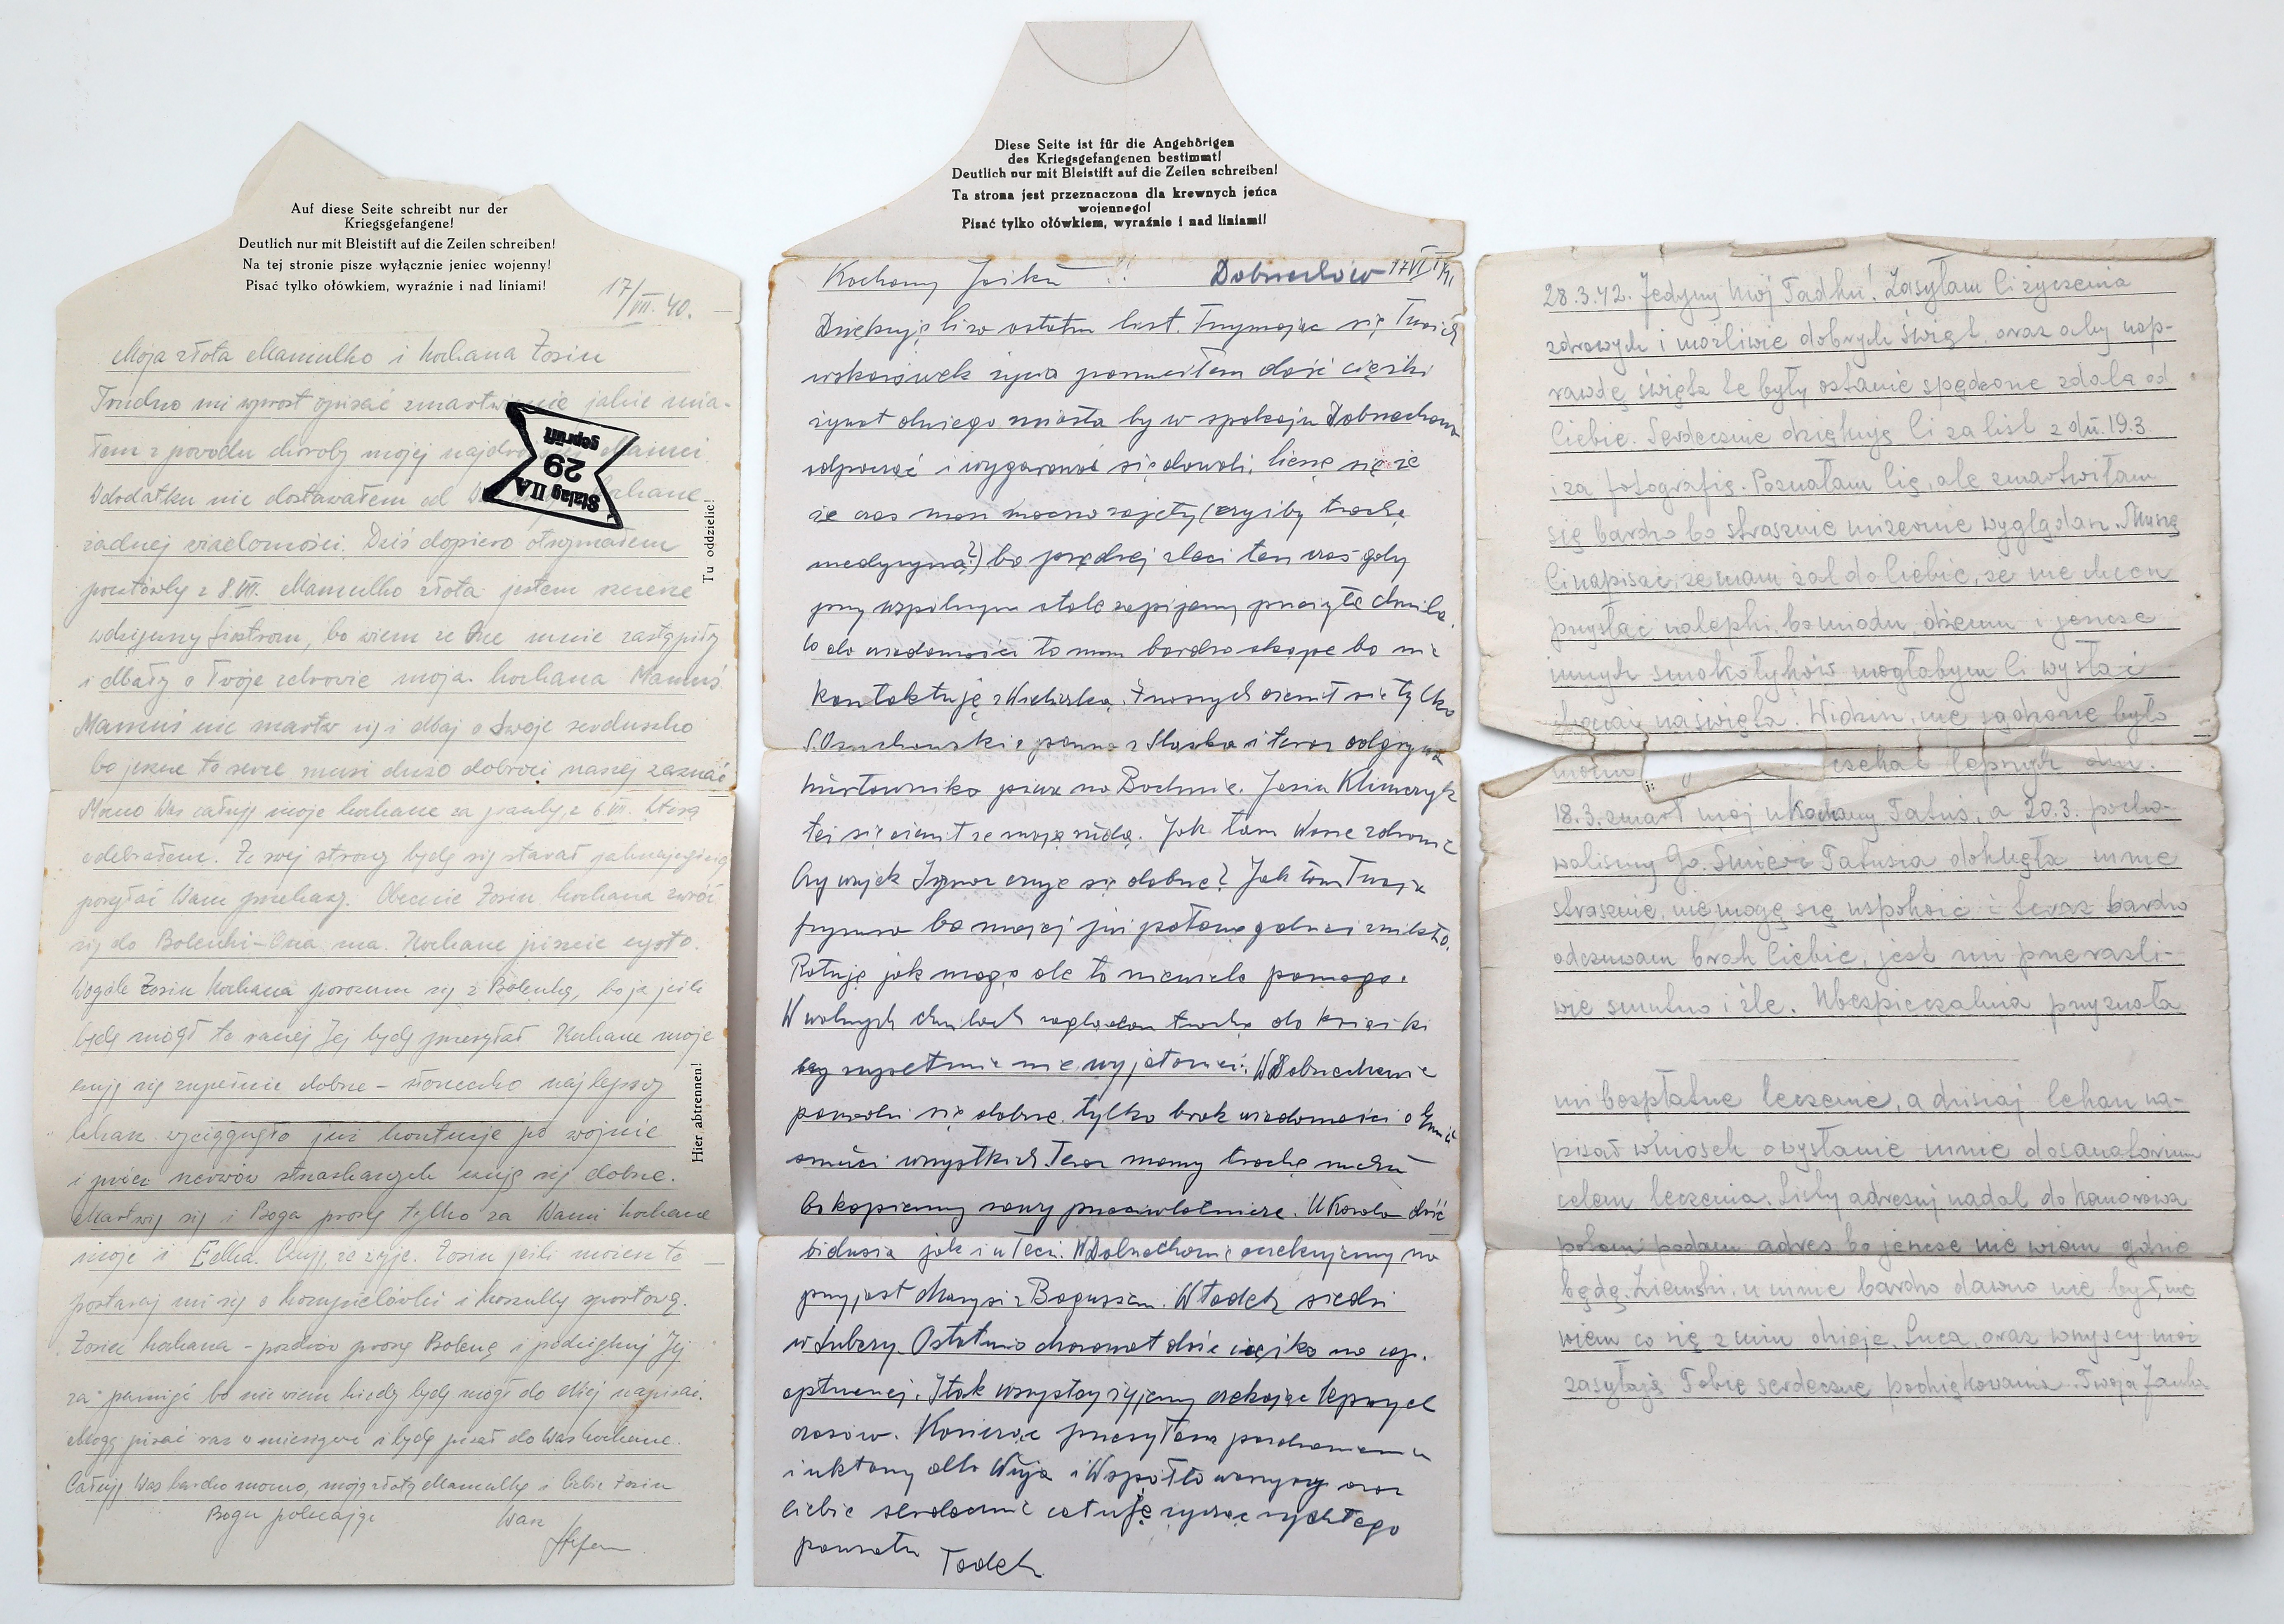 Auf diese Seite schreibt nur der
Kriegsgefangene!
Deutlich nur mit Bleistift auf die Zeilen schreiben!
Na tej stronie pisze wyłącznie jeniec wojenny!
Pisać tylko ołówkiem, wyraźnie i nad liniami!
17/VII. 40.
Moja złota Mamulko i kochana Zosiu
Trudno mi wprost opisać zmartwienie jakie mia-
łem z powodu choroby mojej Mamci.
Wdodatku nie dostawałem od kochane
żadnej wiadomości. Dziś dopiero otrzymałem
pocztówkę z 8.VII. Mamulko złota jestem
bo wiem że One mnie zastąpiły
i dbały o Twoje zdrowie moja kochana Mamuś.
Mamuś nie martw się i dbaj o swoje serduszko
bo jeszcze to serce musi dużo dobroci naszej zaznać
Mocno Was całuję moje kochane za paczkę z 6 VII. którą
odebrałem. Ze swej strony będę się starał
posyłać Wam przekazy. Obecnie Zosiu kochana zwróć
się do Bolenki - Ona ma. Kochane piszcie często.
Wogóle Zosiu kochana porozum się z Bolenką, bo ja jeśli
będę mógł to raczej Jej będę przesyłał Kochane moje
czuję się zupełnie dobrze - słoneczko najlepszy
lekarz wyciągnęło już kontuzje po wojnie
i prócz nerwów czuję się dobrze.
Martwię się i Boga proszę tylko za Wami kochane
moje i Edka. Czuję, że żyje. Zosiu jeśli możesz to
postaraj mi się o kąpielówki i koszulkę sportową.
Zosieć kochana - pozdrów proszę Bolenę i podziękuj Jej
za pamięć bo nie wiem kiedy będę mógł do Niej napisać.
Mogę pisać raz w miesiącu i będę pisał do Was kochane.
Całuję Was bardzo mocno, moją złotą Mamulkę i Ciebie Zosiu
Bogu polecając Wasz
Stefan
Stalag II A
29
geprüft
Tu oddzielić!
Hier abtrennen!
Diese Seite ist für die Angehörigen
des Kriegsgefangenen bestimmt!
Deutlich nur mit Bleistift auf die Zeilen schreiben!
Ta strona jest przeznaczona dla krewnych jeńca
wojennego!
Pisać tylko ołówkiem, wyraźnie i nad liniami!
Kochany Jaśku!! Dobrochów 17 VI 41
Dziękuję Ci za ostatni list. Trzymając się Twoich
wskazówek życia porzuciłem dość ciężki
żywot dużego miasta by w spokoju Dobrochowa
odpocząć i wygarować się dowoli. Cieszę się że
że czas masz mocno zajęty (czyżby trochę
medycyną?) bo prędzej zleci ten czas gdy
przy wspólnym stole zapijemy przeżyte chwile.
Co do wiadomości to mam bardzo skąpe bo nie
kontaktuję z Wieliczką. Z naszych ożenił się tylko
z panną z Śląska i teraz odgrywa
hurtownika piwa na Bochnię. Jasiu Klimczyk
też się ożenił ze swoją rudą. Jak tam Wasze zdrowie
Czy wujek Ignac czuje się dobrze? Jak tam Twoja
fryzura bo mojej już połowę gdzieś znikło.
Ratuję jak mogę ale to niewiele pomaga.
W wolnych chwilach zaglądam trochę do książki
by zupełnie nie wyjałowieć. W Dobrochowie
powodzi się dobrze, tylko brak wiadomości o
smuci wszystkich. Teraz mamy trochę ruchu
bo kopiemy rowy przeciwlotnicze. U Karola dość
bidusia jak i u Teci. W Dobrochowie oczekujemy na
przyjazd Marysi z Bogusiem. Władek siedzi
w Lubczy. Ostatnio chorował dość ciężko na zap.
opłucnej. I tak wszyscy żyjemy czekając lepszych
czasów. Kończąc przesyłam pozdrowienia
i ukłony dla Wuja i Współtowarzyszy oraz
Ciebie serdecznie całuję życząc rychłego
powrotu Tadek
28.3.42. Jedyny Mój Tadku! Zasyłam Ci życzenia
zdrowych i możliwie dobrych świąt, oraz aby nap-
rawdę święta te były ostanie spędzone zdala od
Ciebie. Serdecznie dziękuję Ci za list z dn. 19.3.
i za fotografię. Poznałam Cię, ale zmartwiłam
się bardzo bo strasznie mizernie wyglądasz. Muszę
Ci napisać, że mam żal do Ciebie, że nie chcesz
przysłać nalepki, bo miodu, dżemu i jeszcze
innych smakołyków mogłabym Ci wysłać
na święta. Widzisz, nie sądzone było
moim czekać lepszych dni.
18.3. zmarł mój ukochany Tatuś, a 20.3. pocho-
waliśmy Go. Śmierć Tatusia dotknęła mnie
strasznie, nie mogę się uspokoić i teraz bardzo
odczuwam brak Ciebie, jest mi przeraźli-
wie smutno i źle. Ubezpieczalnia przyznała
mi bezpłatne leczenie, a dzisiaj lekarz na-
pisał wniosek o wysłanie mnie do sanatorium
celem leczenia. Listy adresuj nadal do
potem podam adres, bo jeszcze nie wiem gdzie
będę. Ziemski u mnie bardzo dawno nie był, nie
wiem co się z nim dzieje. Luca, oraz wszyscy moi
zasyłają Tobie serdeczne podziękowania. Twoja Janka